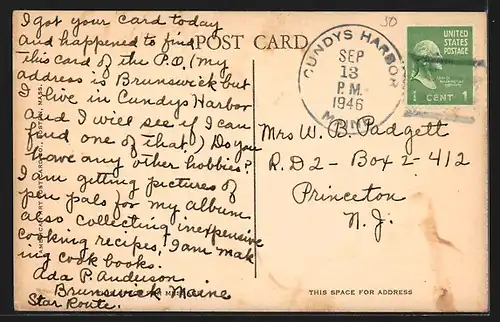 I got your card today
and happened to find
this card of the P.O. (my
address is Brunswick but
I live in Cundys Harbor
and I will see if I can
find one of that.) Do you
have any other hobbies?
I am getting pictures of
pen pals for my album
also collecting inexpensive
cooking recipes, I am mak
ing cook books.
Ada P. Anderson
Brunswick Maine
Star Route.
POST CARD
CUNDYS HARBOR
SEP
13
P.M.
1946
MAINE
50
UNITED
STATES
POSTAGE
1 CENT 1
Mrs W. B. Padgett
R.D 2 - Box 2-412
Princeton
N. J.
THIS SPACE FOR ADDRESS